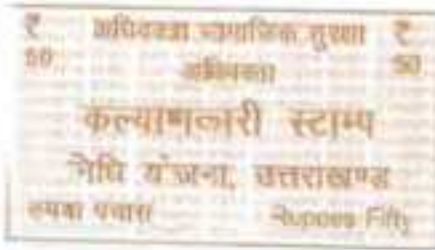 ₹ अधिवक्ता सामाजिक सुरक्षा ₹
50 अधिवक्ता 50
कल्याणकारी स्टाम्प
निधि योजना, उत्तराखण्ड
रुपया पचास Rupees Fifty